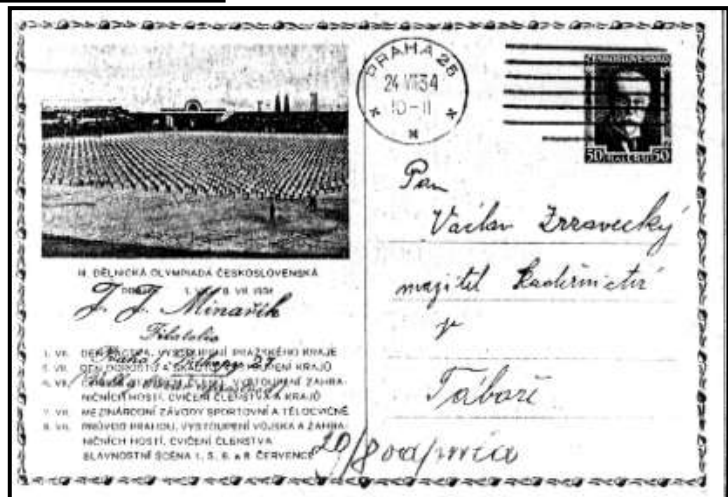 PRAHA 25
24 VII 34
10-11
ČESKOSLOVENSKO
50 HALÉŘŮ 50
Pan
Václav Zrzavecký
majitel kadeřnictví
v
Táboře
III. DĚLNICKÁ OLYMPIADA ČESKOSLOVENSKÁ
1. VII. 8. VII. 1934
J. J. Minařík
Filatelie
Praha
27
1. VII. DEN VYSTOUPENÍ PRAŽSKÉHO KRAJE
5. VII. DEN DOROSTU A VYSTOUPENÍ KRAJŮ
6. VII. VYSTOUPENÍ ZAHRA-
NIČNÍCH HOSTÍ, CVIČENÍ ČLENSTVA A KRAJŮ
7. VII. MEZINÁRODNÍ ZÁVODY SPORTOVNÍ A TĚLOCVIČNÉ
8. VII. PRŮVOD PRAHOU, VYSTOUPENÍ VOJSKA A ZAHRA-
NIČNÍCH HOSTÍ, CVIČENÍ ČLENSTVA
SLAVNOSTNÍ SCÉNA 1. 5. 6. a 8. ČERVENCE